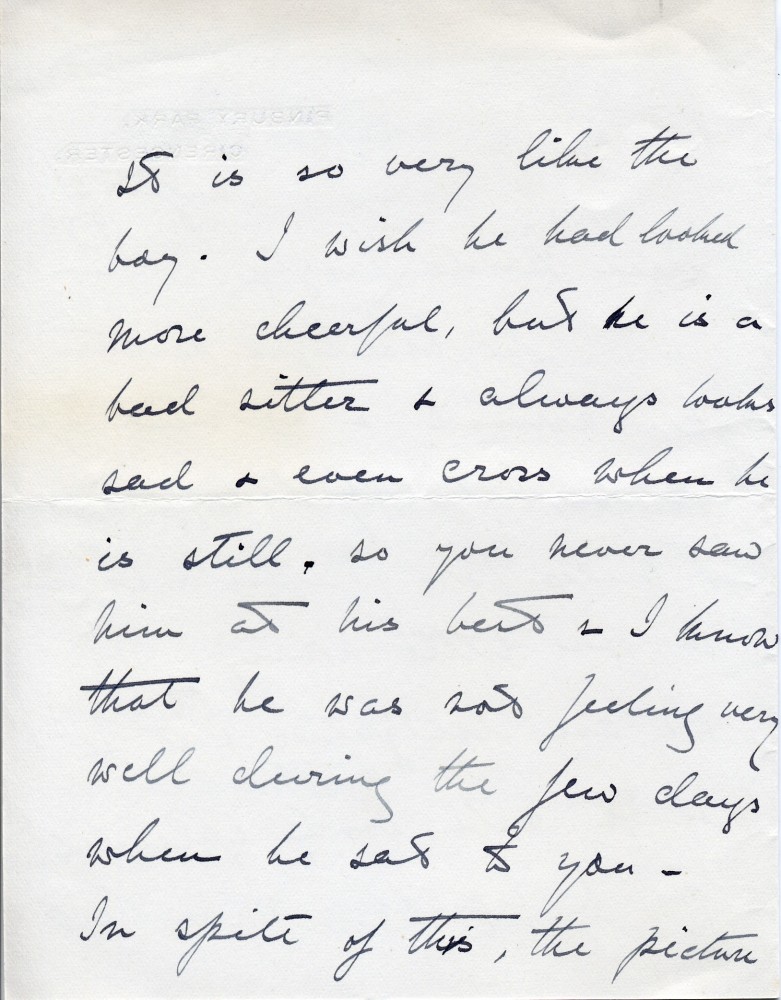 PINBURY PARK,
CIRENCESTER.
It is so very like the
boy. I wish he had looked
more cheerful, but he is a
bad sitter & always looks
sad & even cross when he
is still. so you never saw
him at his best & I know
that he was not feeling very
well during the few days
when he sat to you -
In spite of this, the picture